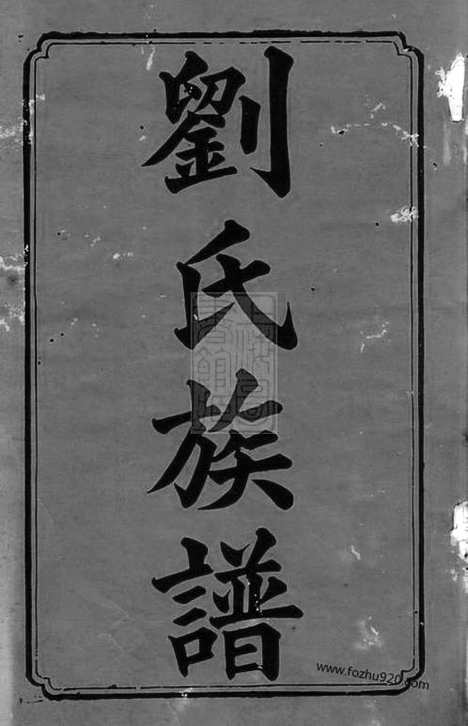 劉氏族譜
www.fozhu920.com